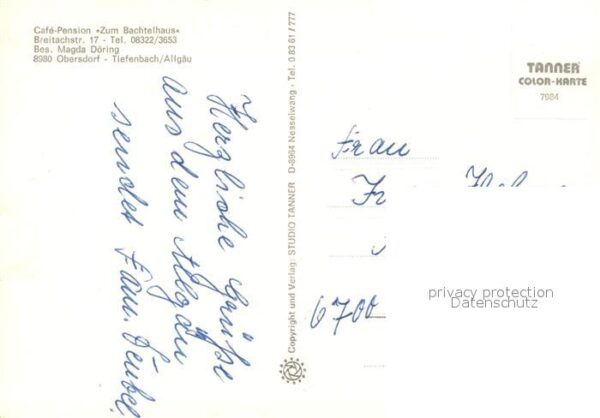 Café-Pension «Zum Bachtelhaus«
Breitachstr. 17 - Tel. 08322/3653
Bes. Magda Döring
8980 Obersdorf - Tiefenbach/Allgäu
Herzliche Grüße
aus dem Allgäu
sendet Fam. Teubel.
Copyright und Verlag: STUDIO TANNER D-8964 Nesselwang · Tel. 0 83 61 / 777
TANNER
COLOR-KARTE
7984
Frau
6700
privacy protection
Datenschutz